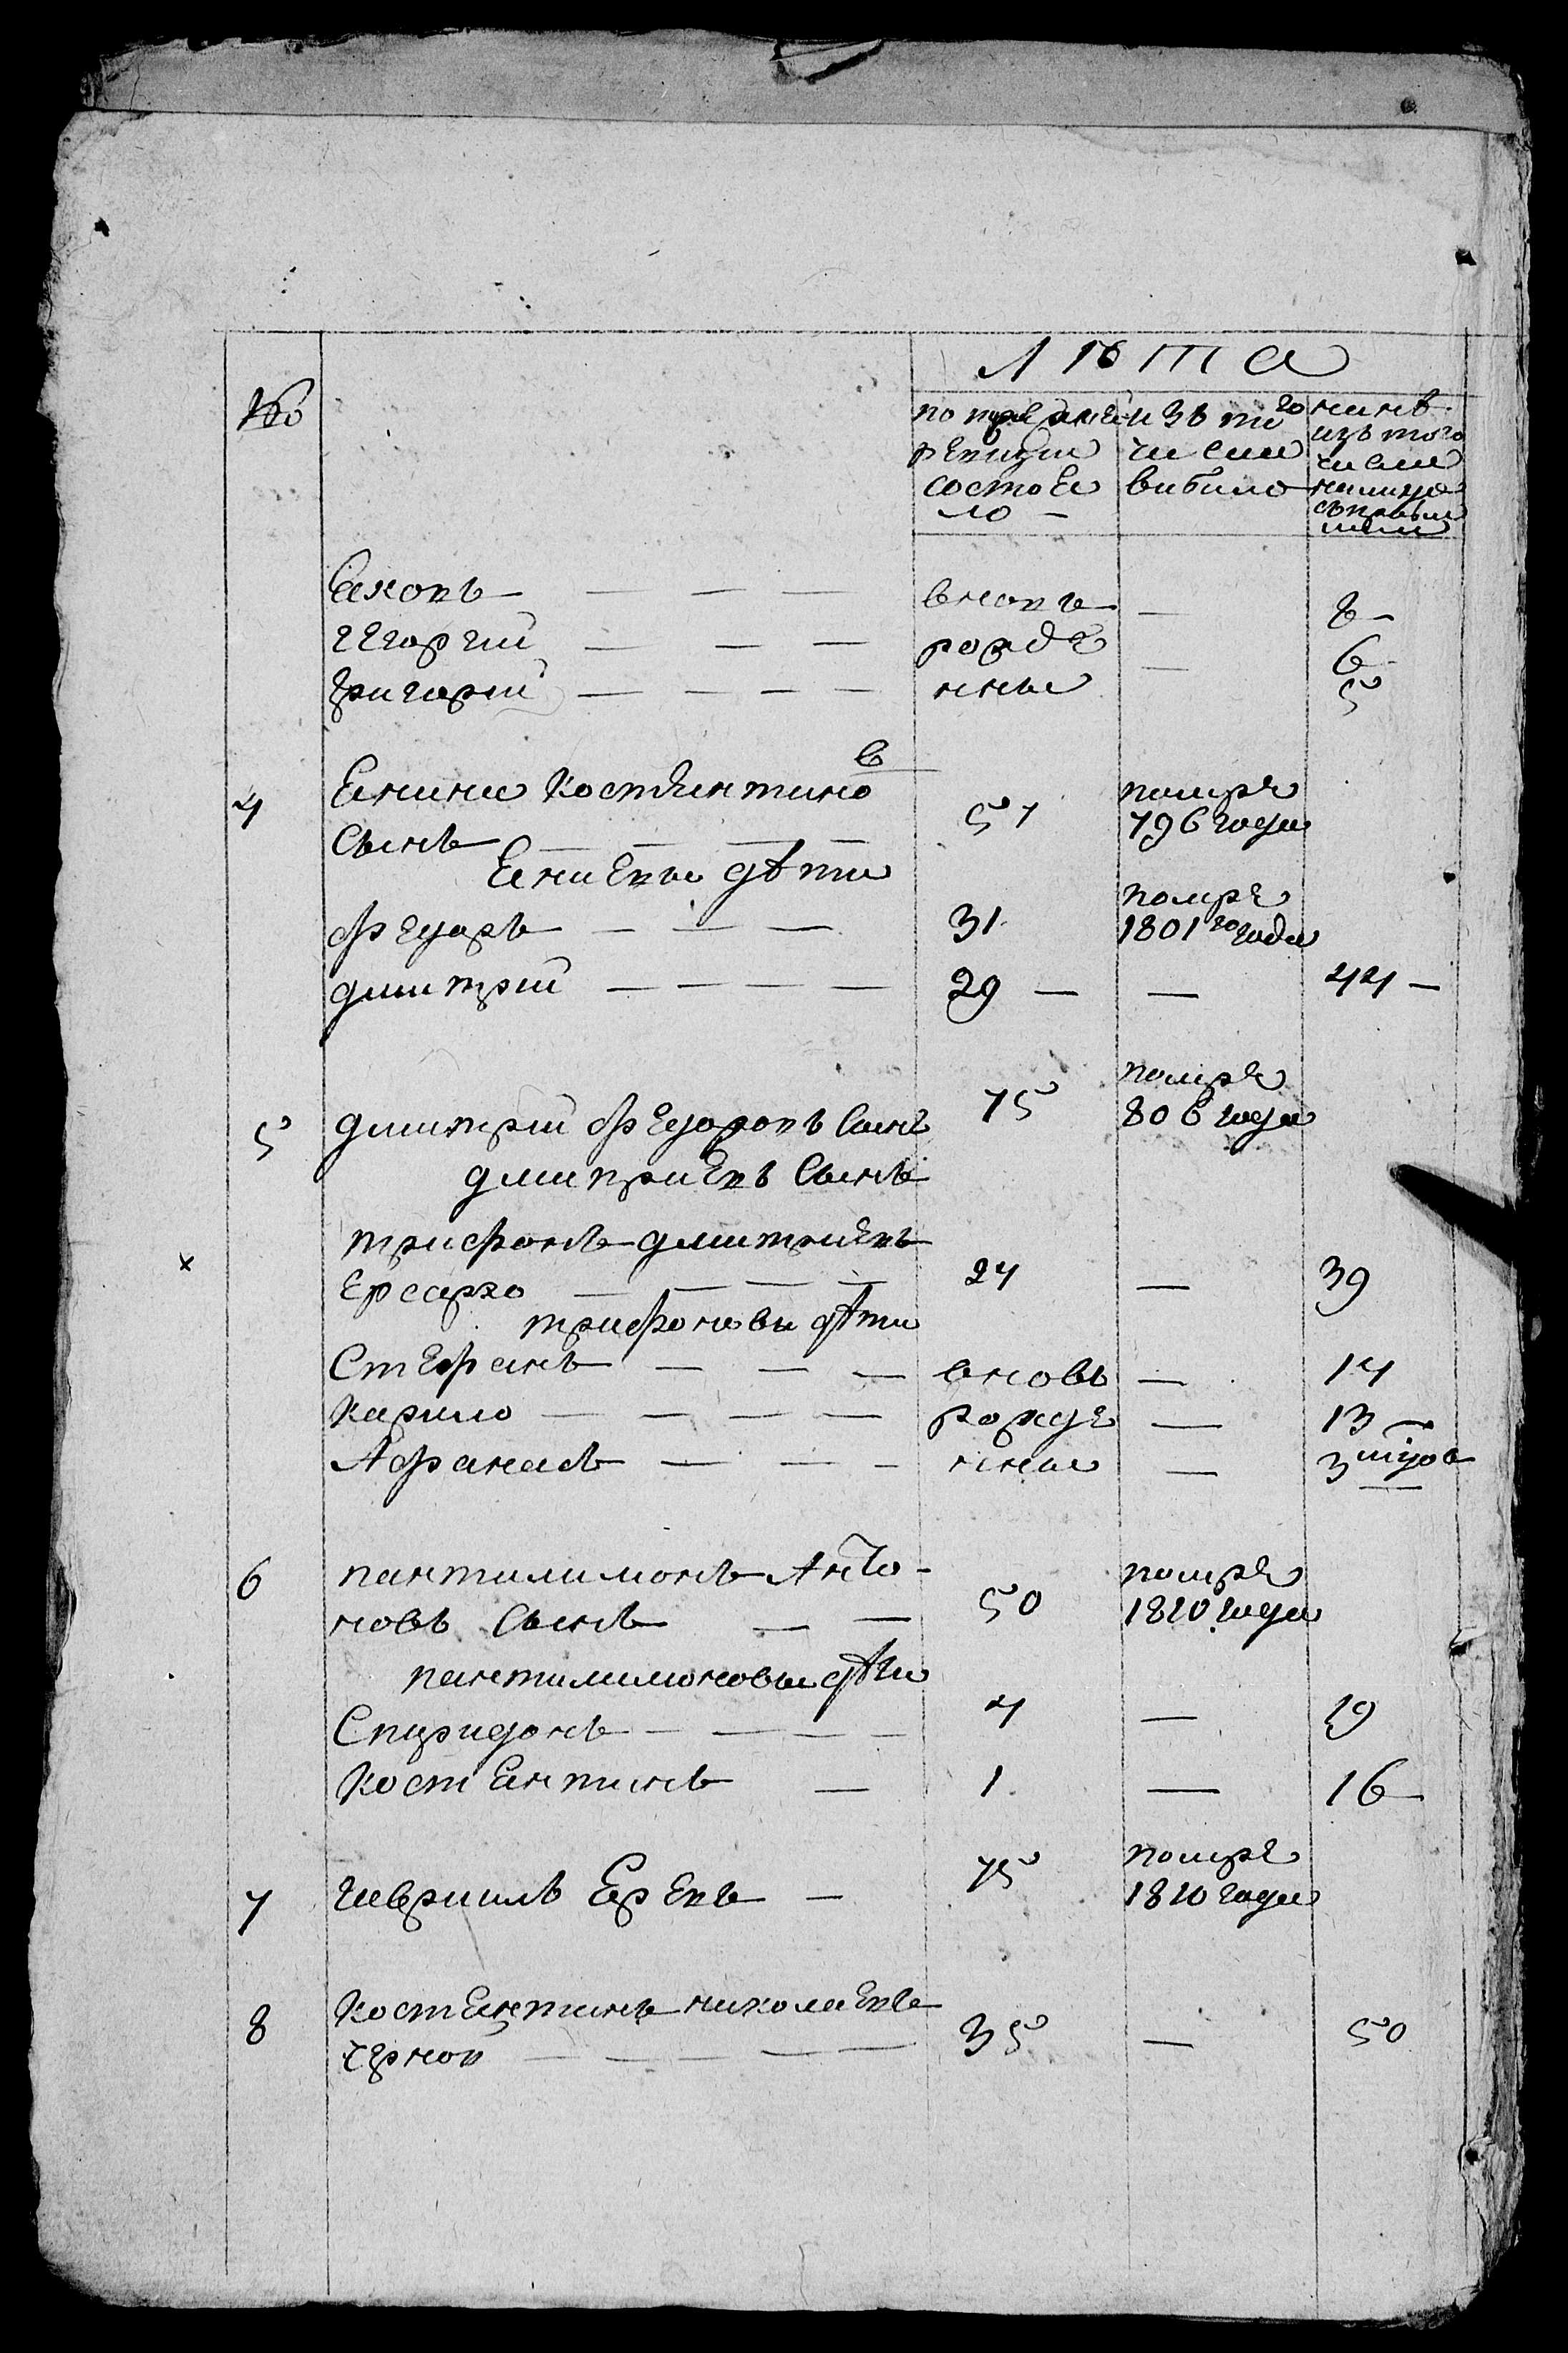 №
лѣта
по прежней ревизіи состояло
изъ того числа вибило
нинѣ изъ того числа налицо
Яковъ — — — вновъ — 8
Георгий — — — рожде — 6
Григорий — — — — нные 5
4 Анания Костянтинов
сынъ — — — 51 помре 796 года
Ананевы дѣти
Федоръ — — — 31 помре 1801го года
Дмитрий — — — — 29 — — 44 —
5 Дмитрий Федоровъ сынъ 75 помре 806 года
Дмитриевъ сынъ
Трифонъ Дмитриевъ
— — — 24 — 39
Трифоновы дѣти
Стефанъ — — — вновь — 14
Карило — — — — рожде — 13 —
Афанасъ — — — нные — 3
6 Пантилимонъ Анто-
новъ сынъ — — 50 помре 1810 года
Пантилимоновы дѣти
Спиридонъ — — — — 4 — 19
Костянтинъ — 1 — 16
7 Гавриилъ — 75 помре 1810 года
8 Костянтинъ Николаевъ
Чернов — — — — — 35 — 50